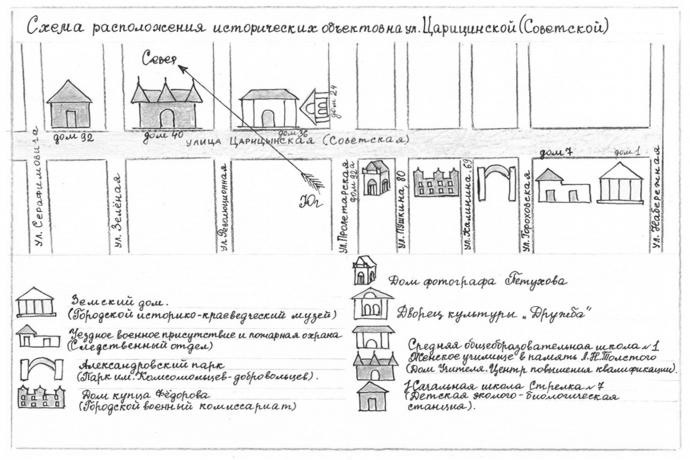 Схема расположения исторических объектов на ул. Царицинской (Советской)
Север
дом 24
дом 92
дом 40
дом 36
улица Царицынская (Советская)
дом 7
дом 1
Юг
ул. Серафимовича
ул. Зелёная
ул. Революционная
ул. Пролетарская
дом 92а
ул. Пушкина, 80
ул. Калинина, 69
ул. Гороховская
ул. Набережная
Дом фотографа Петухова
Земский дом.
(Городской историко-краеведческий музей)
Дворец культуры „Дружба"
Уездное военное присутствие и пожарная охрана
(Следственный отдел)
Средная общеобразовательная школа №1
Женское училище в память Л.Н.Толстого
(Дом Учителя. Центр повышения квалификации).
Александровский парк
(Парк им. Комсомольцев-добровольцев).
Дом купца Фёдорова
(Городской военный комиссариат)
Начальная школа Стрелка №7
(Детская эколого-биологическая
станция).